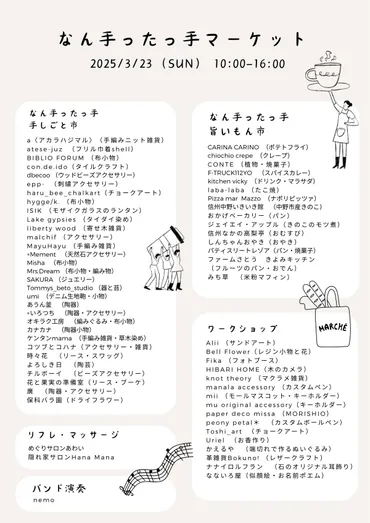 なん手ったっ手マーケット
2025/3/23 (SUN) 10:00–16:00
なん手ったっ手
手しごと市
a〈アカラハジマル〉（手編みニット雑貨）
atese-juz （フリル巾着shell）
BIBLIO FORUM （布小物）
con.de.ido（タイルクラフト）
dbecoo （ウッドビーズアクセサリー）
epp- （刺繍アクセサリー）
haru_bee_chalkart（チョークアート）
hygge/k. （布小物）
ISIK （モザイクガラスのランタン）
Lake gypsies （タイダイ染め）
liberty wood （寄せ木雑貨）
malchif （アクセサリー）
MayuHayu （手編み雑貨）
+Mement （天然石アクセサリー）
Misha （布小物）
Mrs.Dream （布小物・編み物）
SAKURA （ジュエリー）
Tommys_beto_studio（器と苔）
umi （デニム生地鞄・小物）
あうん釜 （陶器）
+いろつち （陶器・アクセサリー）
オキラク工房 （編みぐるみ・布小物）
カナカナ （陶器小物）
ケンタンmama（手編み雑貨・草木染め）
コツブとコハナ（アクセサリー・雑貨）
時々花 （リース・スワッグ）
よろしき日 （陶芸）
チルボーイ （ビーズアクセサリー）
花と果実の準備室（リース・ブーケ）
（陶器・アクセサリー）
保科バラ園（ドライフラワー）
リフレ・マッサージ
めぐりサロンあわい
隠れ家サロンHana Mana
バンド演奏
nemo
なん手ったっ手
旨いもん市
CARINA CARINO （ポテトフライ）
chiochio crepe （クレープ）
CONTE （植物・焼菓子）
F-TRUCK112YO （スパイスカレー）
kitchen vicky （ドリンク・マラサダ）
laba-laba （たこ焼）
Pizza mar Mazzo （ナポリピッツァ）
信州中野いきいき館 （中野市産きのこ）
おかげベーカリー（パン）
ジェイエイ・アップル（きのこのモツ煮）
信州なかの高梨亭（おむすび）
しんちゃんおやき（おやき）
パティスリートレゾア（パン・焼菓子）
ファームさとう きよみキッチン
（フルーツのパン・おでん）
みち草 （米粉マフィン）
MARCHÉ
ワークショップ
Alii （サンドアート）
Bell Flower（レジン小物と花）
Fika （フォトブース）
HIBARI HOME（木のカメラ）
knot theory （マクラメ雑貨）
manala accessory （カスタムペン）
mii （モールマスコット・キーホルダー）
mu original accessory（キーホルダー）
paper deco missa （MORISHIO）
peony petal＊ （カスタムボールペン）
Toshi_art （チョークアート）
Uriel （お香作り）
かえるや （端切れで作るぬいぐるみ）
革雑貨Bokunot（レザークラフト）
ナナイロルフラン （石のオリジナル耳飾り）
なないろ屋（似顔絵・お名前ポエム）